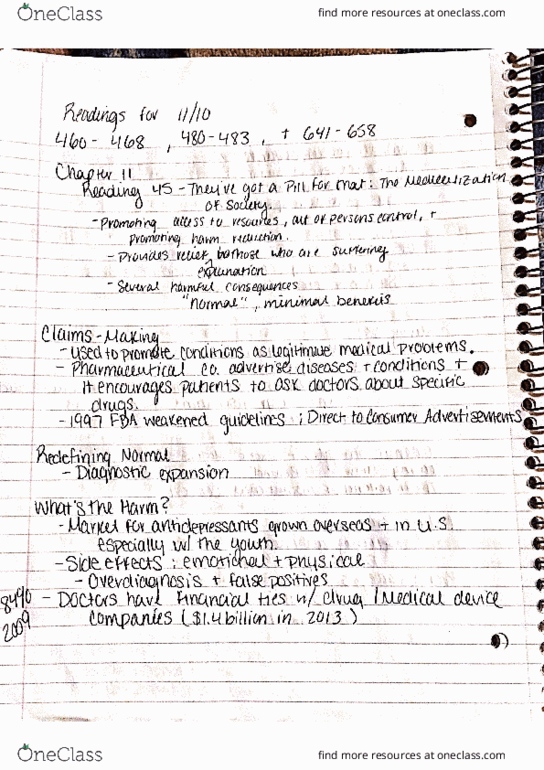 OneClass
find more resources at oneclass.com
Readings for 11/10
460 - 468 , 480-483 , + 641-658
Chapter 11
Reading 45 - They've got a Pill for that: The Medicalization
of Society.
- Promoting access to resources, out of persons control, +
promoting harm reduction.
- Provides relief, to those who are suffering
explanation
- Several harmful consequences
"normal", minimal benefits
Claims-Making
- used to promote conditions as legitimate medical problems.
- Pharmaceutical co. advertise diseases + conditions +
it encourages patients to ask doctors about specific
drugs.
- 1997 FDA weakened guidelines ; Direct to Consumer Advertisements
Redefining Normal
- Diagnostic expansion
What's the Harm?
- Market for antidepressants grown overseas + in U.S.
especially w/ the youth.
- Side effects : emotional + physical
- Overdiagnosis + false positives
- Doctors have financial ties w/ drug / Medical device
companies ($1.4 billion in 2013)
84%
2009
OneClass
find more resources at oneclass.com